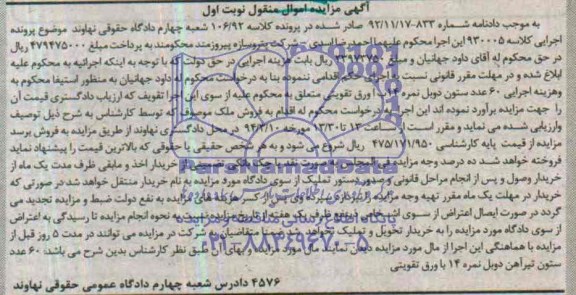 آگهی مزایده اموال منقول نوبت اول
به موجب دادنامه شماره ۸۳۳-۹۲/۱۱/۱۷ صادر شده در پرونده کلاسه ۱۰۶/۹۲ شعبه چهارم دادگاه حقوقی نهاوند موضوع پرونده
اجرایی کلاسه ۹۳۰۰۰۵ این اجرا محکوم علیه شرکت پترو سازه پیروزمند محکوم به پرداخت مبلغ ۴۷۹۴۷۵۰۰۰ ریال
در حق محکوم له آقای داود جهانیان و مبلغ ریال بابت هزینه اجرایی در حق دولت که با توجه به اینکه اجرائیه به محکوم علیه
ابلاغ شده و در مهلت مقرر قانونی نسبت به اجرای اقدامی ننموده بنا به درخواست محکوم له داود جهانیان به منظور استیفا محکوم به
وهزینه اجرایی ۶۰ عدد ستون دوبل نمره ۱۴ با ورق تقویتی متعلق به محکوم علیه از سوی این اجرا توقیف که ارزیاب دادگستری قیمت آن
را جهت مزایده برآورد نموده اند این اجرا به درخواست محکوم له اقدام به فروش ملک موصوف که توسط کارشناس به شرح ذیل توصیف
وارزیابی شده می نماید و مقرر است از ساعت ۱۲ تا ۱۲/۳۰ مورخه ۹۴/۲/۱۰ در محل دادگستری نهاوند از طریق مزایده به فروش برسد
مزایده از قیمت پایه کارشناسی ۴۷۵/۱۷۱/۹۵۰ ریال شروع می شود و به هر شخص حقیقی یا حقوقی که بالاترین قیمت را پیشنهاد نماید
فروخته خواهد شد. ده درصد وجه مزایده فی المجلس به صورت نقد یا چک بانکی تضمینی از خریدار اخذ و مابقی ظرف مدت یک ماه از
خریدار وصول و پس از انجام مراحل قانونی و صدور دستور تملیک از سوی دادگاه مورد مزایده به نام خریدار منتقل خواهد شد در صورتی که
خریدار در مهلت یک ماه مقرر تهیه وجه مزایده را نپردازد سپرده وی پس از کسر هزینه های مزایده به نفع دولت ضبط و مزایده تجدید می
گردد در صورت ایصال اعتراض از سوی ظرف یک هفته از تاریخ مزایده نسبت به نحوه انجام مزایده تا رسیدگی به اعتراض
از سوی دادگاه مورد مزایده را به خریدار تحویل و تملیک نخواهد شد ضمنا متقاضیان به شرکت در مزایده می توانند در مدت ۵ روز قبل از
مزایده با هماهنگی این اجرا از مال مورد مزایده دیدن نمایند مال مورد مزایده و بهای آن طبق نظر کارشناس بدین شرح می باشد: ۶۰ عدد
ستون تیرآهن دوبل نمره ۱۴ با ورق تقویتی
۴۵۷۶ دادرس شعبه چهارم دادگاه عمومی حقوقی نهاوند
ParsNamadData
۰۲۱-۸۸۳۴۹۶۷۰-۵